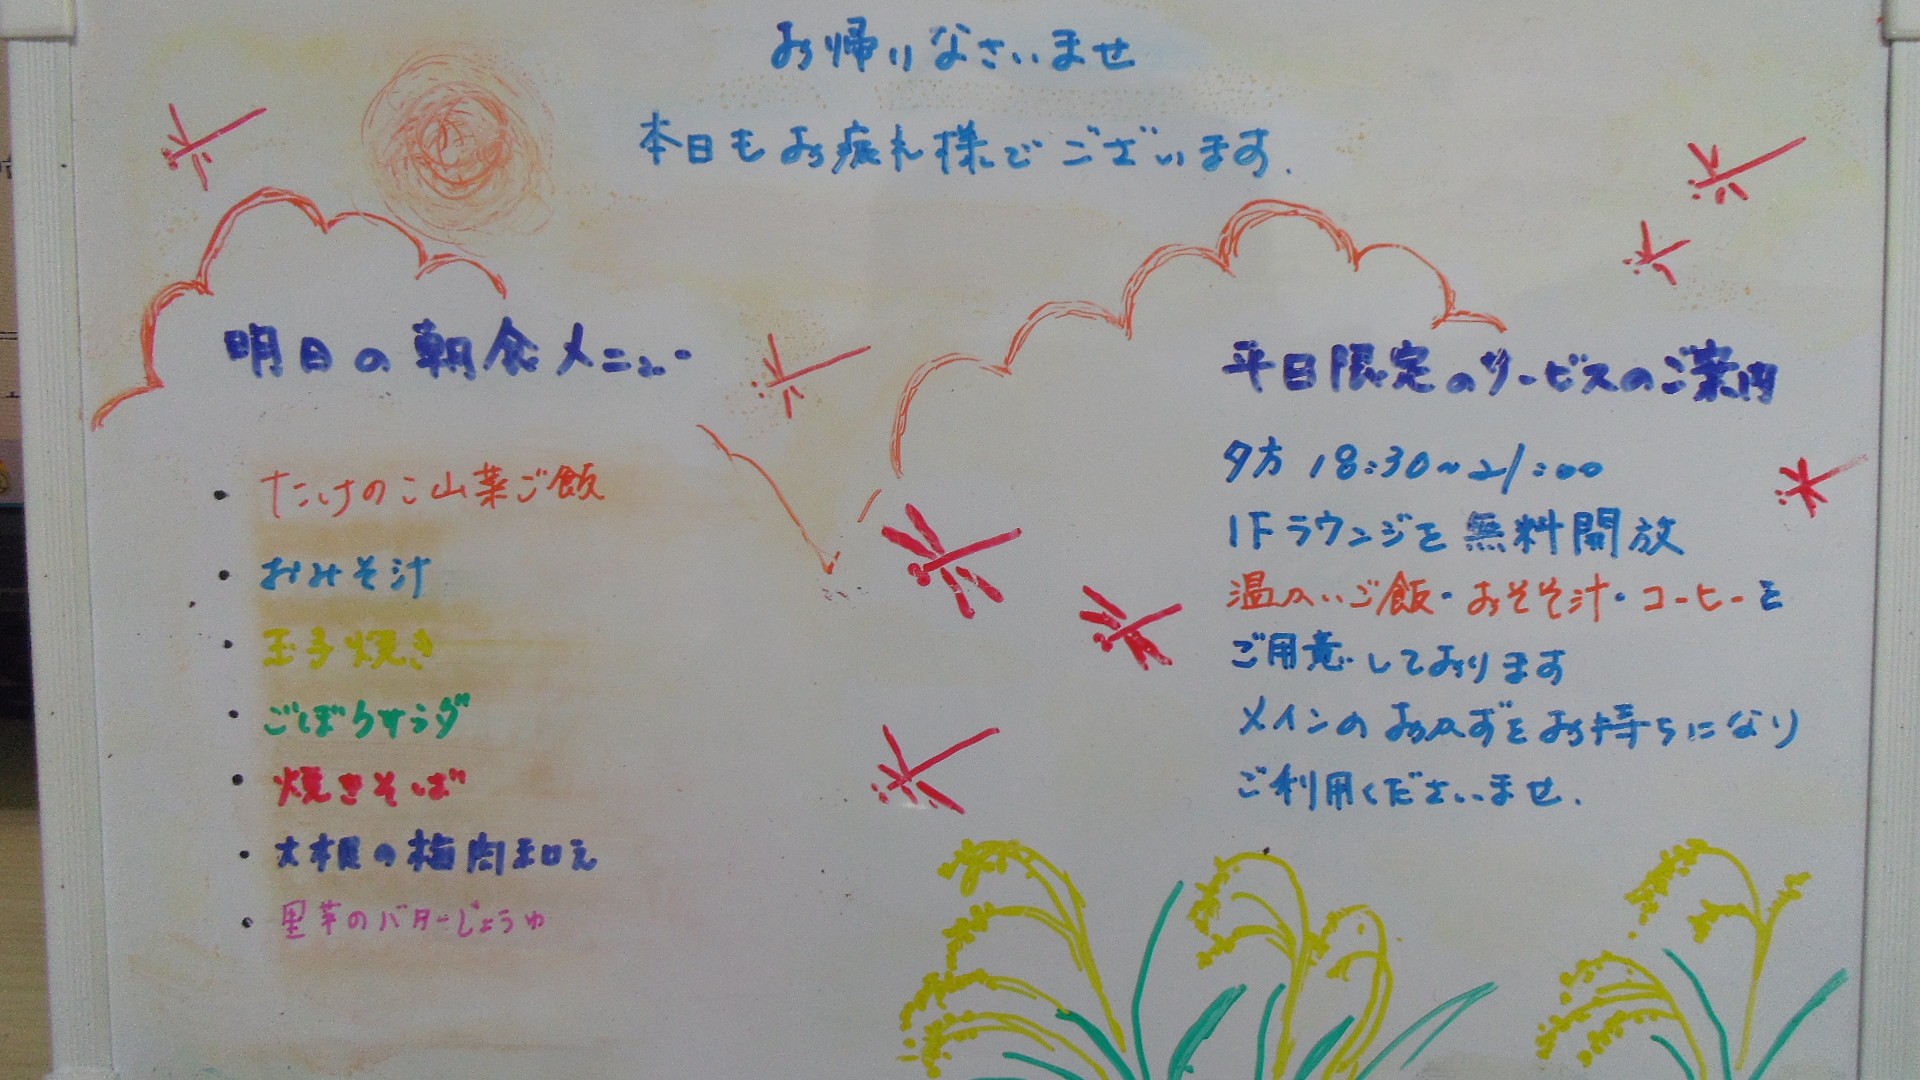 お帰りなさいませ
本日もお疲れ様でございます.
明日の朝食メニュー
・たけのこ山菜ご飯
・おみそ汁
・玉子焼き
・ごぼうサラダ
・焼きそば
・大根の梅肉和え
・里芋のバターじょうゆ
平日限定のサービスのご案内
夕方 18:30~21:00
1Fラウンジを無料開放
温かいご飯・おそそ汁・コーヒーを
ご用意しております
メインのおかずをお持ちになり
ご利用くださいませ.